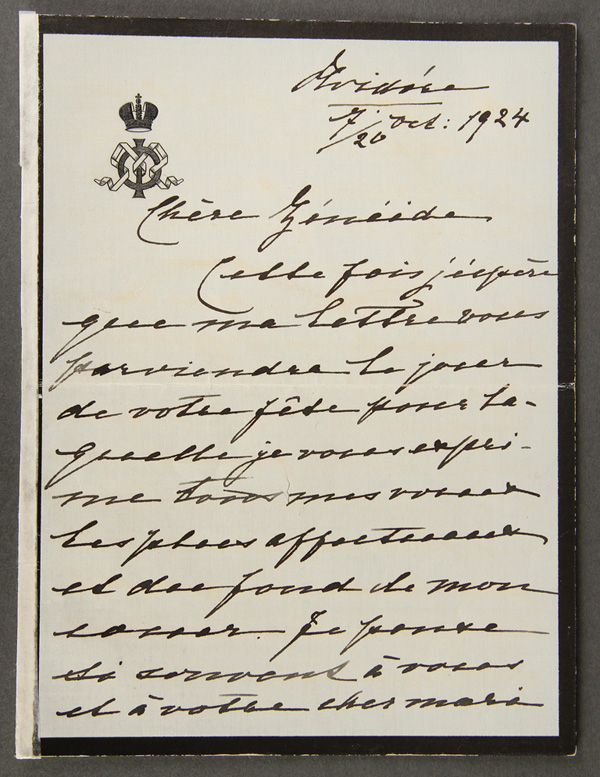 Hvidöre
7/20 Oct: 1924
Chère Zénéïde
Cette fois j'éspère
que ma lettre vous
parviendra le jour
de votre fête pour la-
quelle je vous expri-
me tous mes voeux
les plus affectueux
et du fond de mon
coeur. Je pense
si souvent à vous
et à votre cher mari